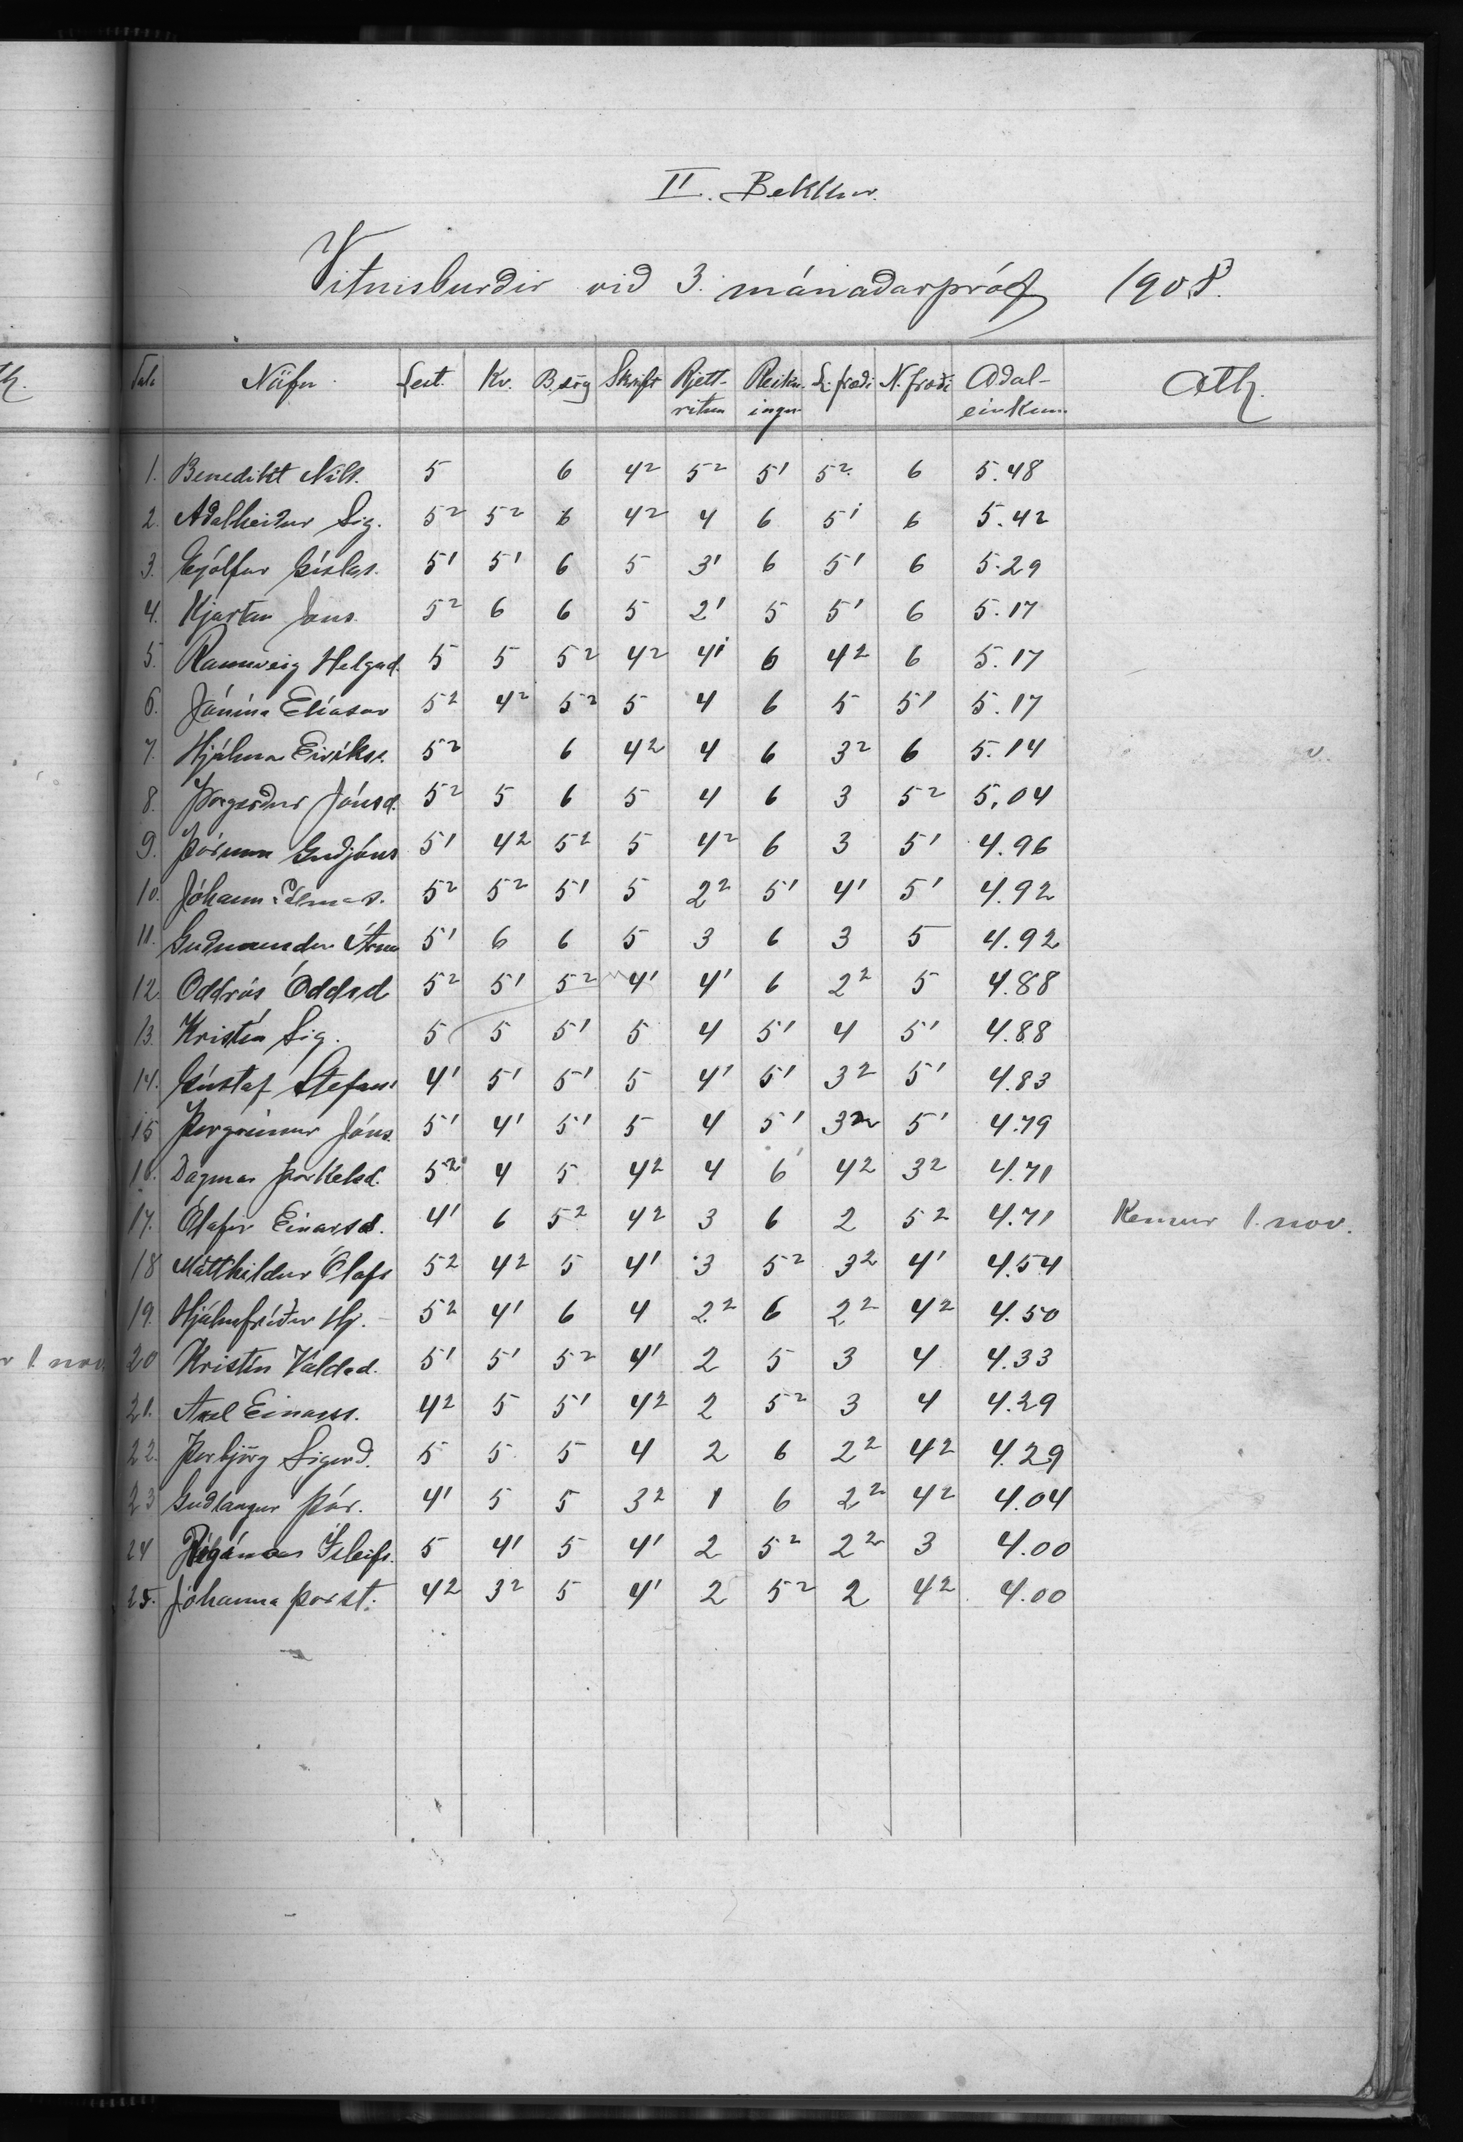 II. Bekkur.
Vitnisburðir við 3. mánaðarpróf 1908.
Tala Nöfn Lest. Kv. B.sög Skrift Rjett-ritun Reikn-ingur L.fræði N.fræði Aðal-einkunn Ath.
1. Benedikt Nik. 5 6 4² 5² 5¹ 5² 6 5.48
2. Aðalheiður Sig. 5² 5² 6 4² 4 6 5¹ 6 5.42
3. Eyólfur Gíslas. 5¹ 5¹ 6 5 3¹ 6 5¹ 6 5.29
4. Kjartan Jóns. 5² 6 6 5 2¹ 5 5¹ 6 5.17
5. Rannveig Helgad. 5 5 5² 4² 4¹ 6 4² 6 5.17
6. Jónína Elíasar 5² 4² 5² 5 4 6 5 5¹ 5.17
7. Hjálmar Eiríkss. 5² 6 4² 4 6 3² 6 5.14
8. Þorgerður Jónsd. 5² 5 6 5 4 6 3 5² 5.04
9. Þórunn Guðjóns 5¹ 4² 5² 5 4² 6 3 5¹ 4.96
10. Jóhann Pálmas. 5² 5² 5¹ 5 2² 5¹ 4¹ 5¹ 4.92
11. Guðmundur Árna 5¹ 6 6 5 3 6 3 5 4.92
12. Oddrós Oddsd 5² 5¹ 5² 4¹ 4¹ 6 2² 5 4.88
13. Kristín Sig. 5 5 5¹ 5 4 5¹ 4 5¹ 4.88
14. Gústaf Stefáns 4¹ 5¹ 5¹ 5 4¹ 5¹ 3² 5¹ 4.83
15 Þorgrímur Jóns. 5¹ 4¹ 5¹ 5 4 5¹ 3² 5¹ 4.79
16. Dagmar Þorkelsd. 5² 4 5 4² 4 6 4² 3² 4.71
17. Ólafía Einarsd. 4¹ 6 5² 4² 3 6 2 5² 4.71 Kemur 1. nov.
18 Matthildur Ólafs 5² 4² 5 4¹ 3 5² 3² 4¹ 4.54
19. Hjálmfríður Hj. 5² 4¹ 6 4 2² 6 2² 4² 4.50
20 Kristín Valdad. 5¹ 5¹ 5² 4¹ 2 5 3 4 4.33
21. Axel Einarss. 4² 5 5¹ 4² 2 5² 3 4 4.29
22. Þorbjörg Sigurd. 5 5 5 4 2 6 2² 4² 4.29
23 Guðlaugur Þór. 4¹ 5 5 3² 1 6 2² 4² 4.04
24 Ísleifs. 5 4¹ 5 4¹ 2 5² 2² 3 4.00
25. Jóhanna Þorst. 4² 3² 5 4¹ 2 5² 2 4² 4.00